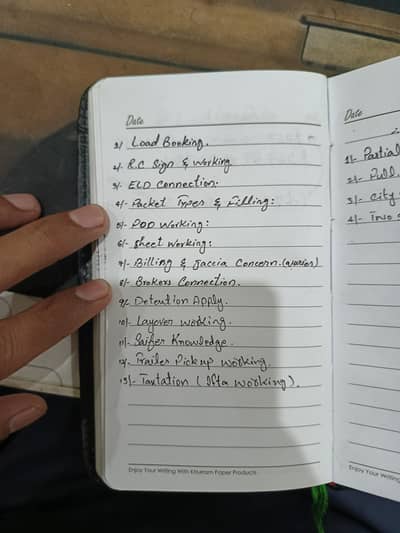 Date
1/- Load Booking.
2/- R.C Sign & Working
3/- ELD Connection.
4/- Packet Types & Filling:
5/- POD Working:
6/- Sheet Working:
7/- Billing & Jaccia Concern.
8/- Brokers Connection.
9/- Detention Apply.
10/- Layover working.
11/- Saifer Knowledge.
12/- Trailer Pickup Working.
13/- Taxtation (Ifta Working).
Enjoy Your Writing With Khurram Paper Products
Date
1/- Partial
2/- Full
3/- City
4/- Two
Enjoy Your Writing